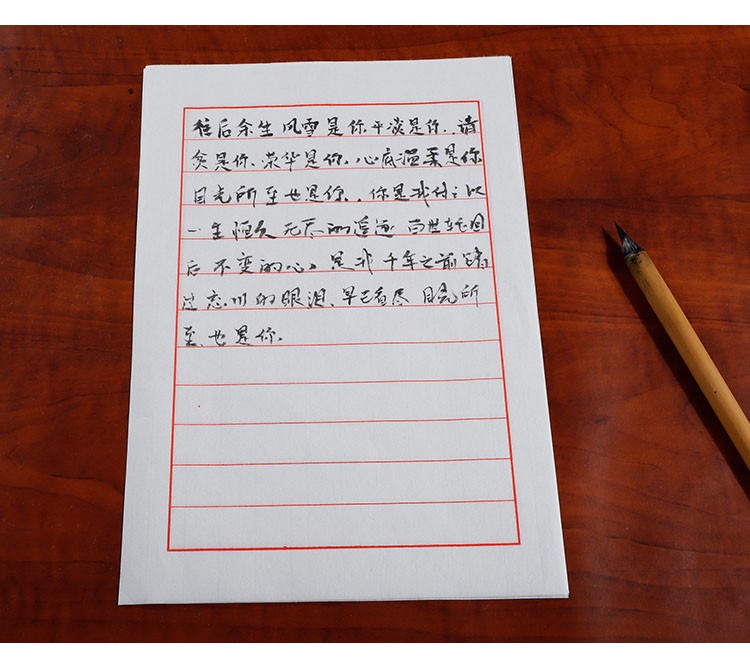 往后余生 风雪是你 平淡是你. 清
贫是你. 荣华是你. 心底温柔是你
目光所至也是你. 你是我付之以
一生恒久无尽的遥 百世轮回
后不变的心. 是我千年之前
过忘川的眼泪. 早已看尽 目光所
至. 也是你.